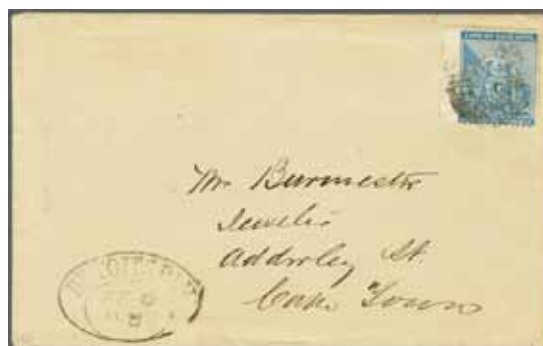 CAPE OF GOOD HOPE
Mr Burmester
Jeweler
Adderley St.
Cape Town